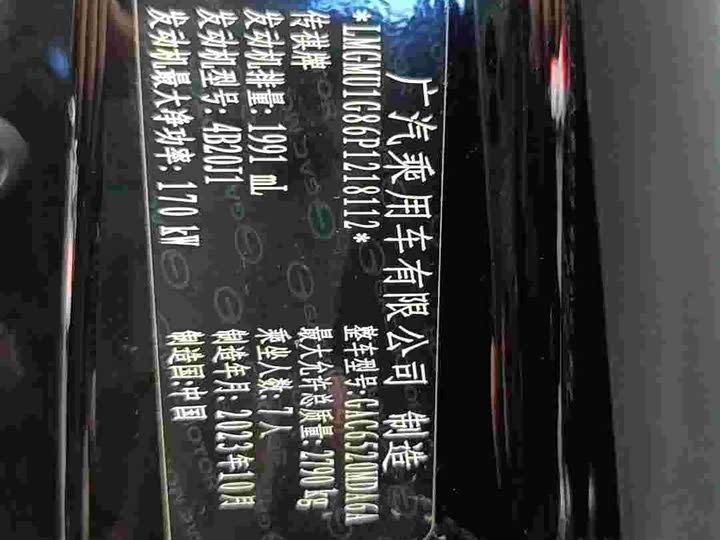 广汽乘用车有限公司 制造
*LMGMU1G86P1218112*
整车型号:GAC6520MDA6A
传祺牌
最大允许总质量:2790 kg
发动机排量: 1991 mL
乘坐人数:7人
发动机型号: 4B20J1
制造年月: 2023年10月
发动机最大净功率: 170 kW
制造国:中国